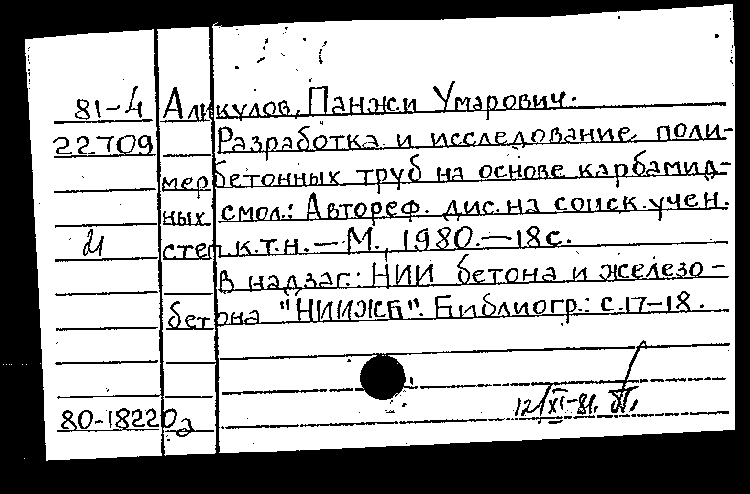 81-4 Аликулов, Панжи Умарович.
22709 Разработка и исследование поли-
мербетонных труб на основе карбамид-
ных смол.: Автореф. дис. на соиск. учен.
степ. к.т.н. — М., 1980. — 18с.
В надзаг.: НИИ бетона и железо-
бетона "НИИЖБ". Библиогр.: с. 17-18.
12/XI-81.
80-18220а